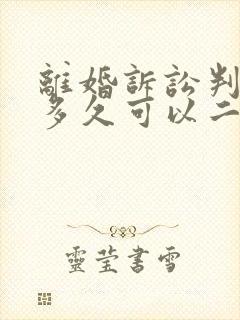 離婚訴訟判
多久可以二
靈莹書雪